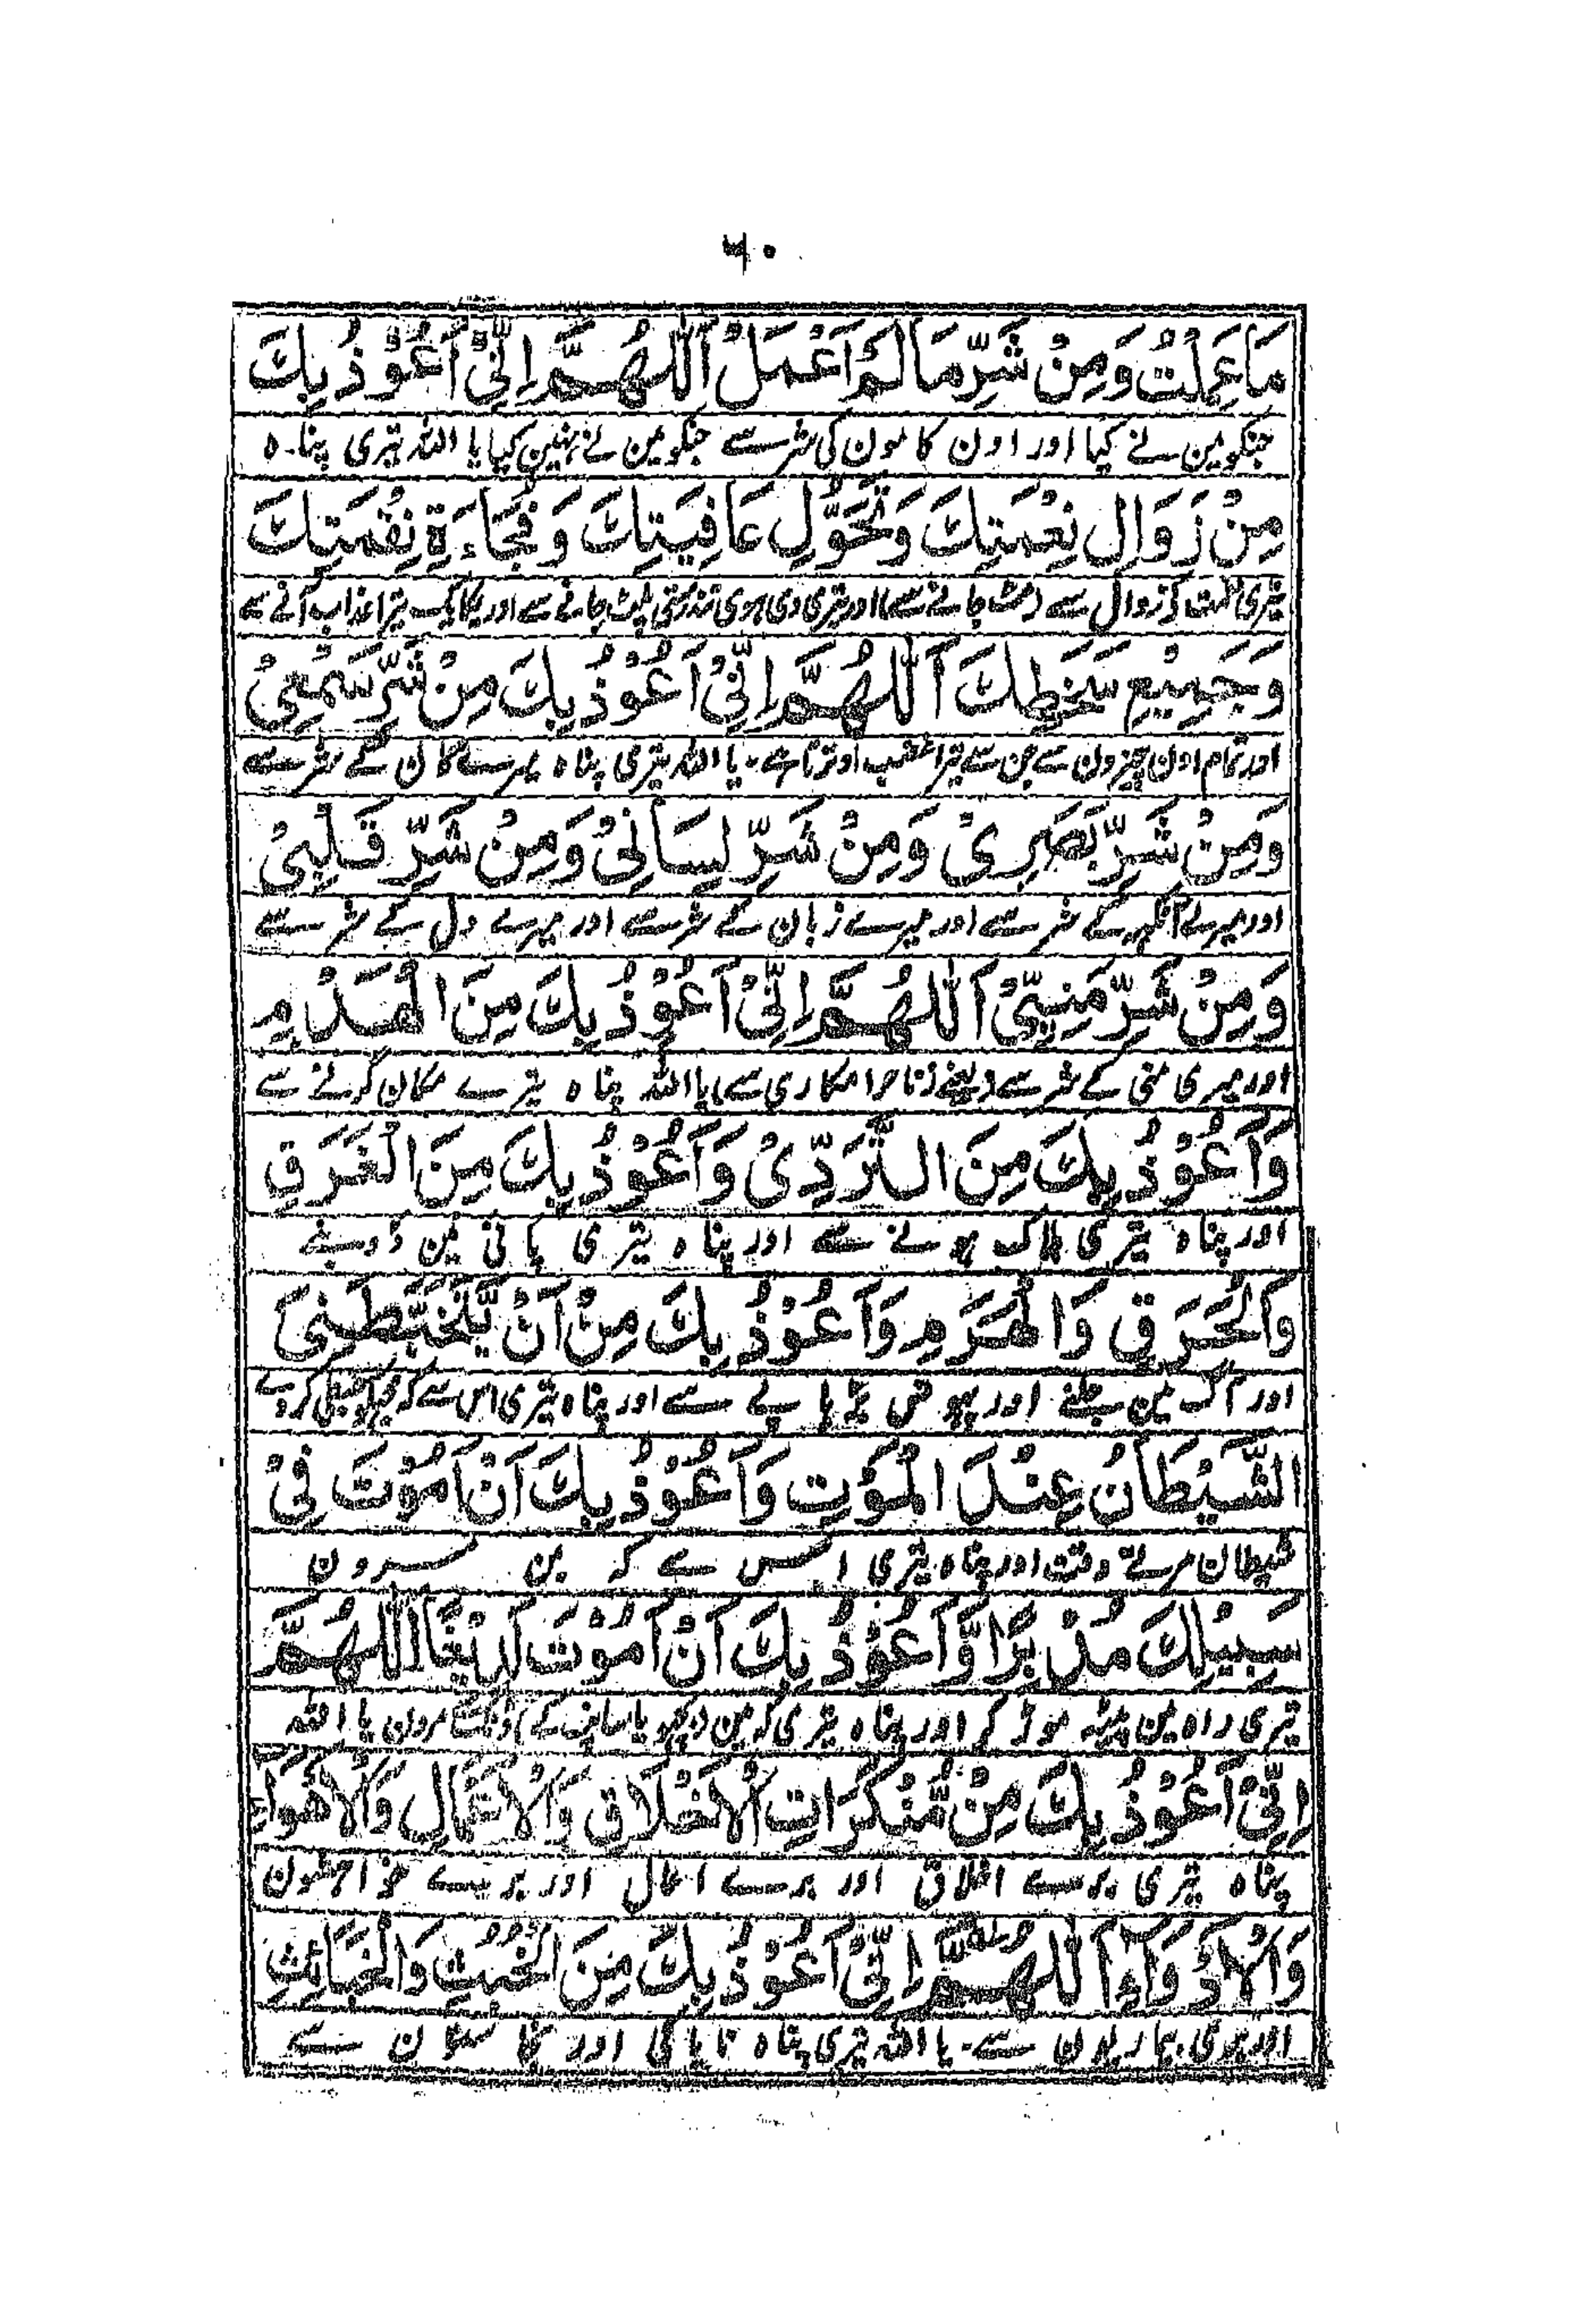 ۶۰
مَا عَمِلْتُ وَمِنْ شَرِّ مَا لَمْ اَعْمَلْ اَللّٰهُمَّ اِنِّيْ اَعُوْذُ بِكَ
جنکو مین نے کیا اور اون کامون کی شر سے جنکو مین نے نہین کیا یا اللہ تیری پناہ
مِنْ زَوَالِ نِعْمَتِكَ وَتَحَوُّلِ عَافِيَتِكَ وَفُجَاءَةِ نِقْمَتِكَ
تیری نعمت کے زوال سے (مٹ جانے سے) اور تیری دی ہوی تندرستی پلٹ جانے سے اور یکایک تیرا عذاب آنے سے
وَجَمِيْعِ سَخَطِكَ اَللّٰهُمَّ اِنِّيْ اَعُوْذُ بِكَ مِنْ شَرِّ سَمْعِيْ
اور تمام اون چیزون سے جن سے تیرا غضب اوترتا ہے۔ یا اللہ تیری پناہ میرے کان کے شر سے
وَمِنْ شَرِّ بَصَرِيْ وَمِنْ شَرِّ لِسَانِيْ وَمِنْ شَرِّ قَلْبِيْ
اور میرے آنکہہ کے شر سے اور میرے زبان کے شر سے اور میرے دل کے شر سے
وَمِنْ شَرِّ مَنِيِّيْ اَللّٰهُمَّ اِنِّيْ اَعُوْذُ بِكَ مِنَ الْهَدْمِ
اور میری منی کے شر سے (یعنے زنا حرامکاری سے) یا اللہ پناہ تیرے مکان گرنے سے
وَاَعُوْذُ بِكَ مِنَ التَّرَدِّيْ وَاَعُوْذُ بِكَ مِنَ الْغَرَقِ
اور پناہ تیری ہلاک ہونے سے اور پناہ تیری پانی مین ڈوبنے
وَالْحَرَقِ وَالْهَرَمِ وَاَعُوْذُ بِكَ مِنْ اَنْ يَّتَخَبَّطَنِيَ
اور آگ مین جلنے اور پہوش بڑہاپے سے اور پناہ تیری اس سے کہ کردے
الشَّيْطَانُ عِنْدَ الْمَوْتِ وَاَعُوْذُ بِكَ اَنْ اَمُوْتَ فِيْ
شیطان مرتے وقت اور پناہ تیری اس سے کہ مین مرون
سَبِيْلِكَ مُدْبِرًا وَّاَعُوْذُ بِكَ اَنْ اَمُوْتَ لَدِيْغًا اَللّٰهُمَّ
تیری راہ مین پیٹہہ موڑ کر اور پناہ تیری کہ مین (بچہو یا سانپ کے) ڈنک سے مرون یا اللہ
اِنِّيْ اَعُوْذُ بِكَ مِنْ مُّنْكَرَاتِ الْاَخْلَاقِ وَالْاَعْمَالِ وَالْاَهْوَاءِ
پناہ تیری برے اخلاق اور برے اعمال اور برے خواہشون
وَالْاَدْوَاءِ اَللّٰهُمَّ اِنِّيْ اَعُوْذُ بِكَ مِنَ الْخُبُثِ وَالْخَبَائِثِ
اور بری بیماریون سے۔ یا اللہ تیری پناہ ناپاکی اور سے